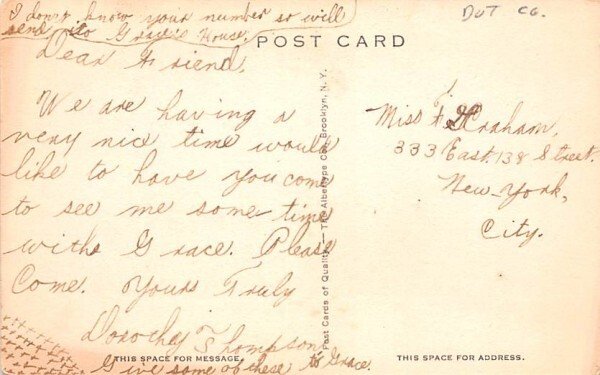 I don't know your number so will
send it to Gracie's House.
DUT CO.
POST CARD
Dear Friend,
We are having a
very nice time would
like to have you come
to see me some time
withs Grace. Please
Come. Yours Truly
Dorothy Thompson
Give some of these to Grace.
THIS SPACE FOR MESSAGE.
Post Cards of Quality. — The Albertype Co., Brooklyn, N.Y.
Miss F. Graham,
333 East. 138 Street.
New York,
City.
THIS SPACE FOR ADDRESS.